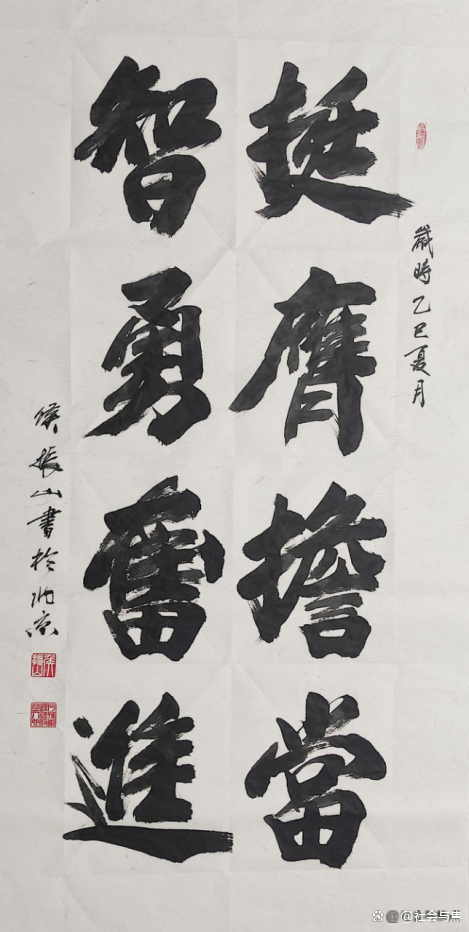 歲時乙巳夏月
挺膺擔當
智勇奮進
侯振山書於北京
@社会与焦